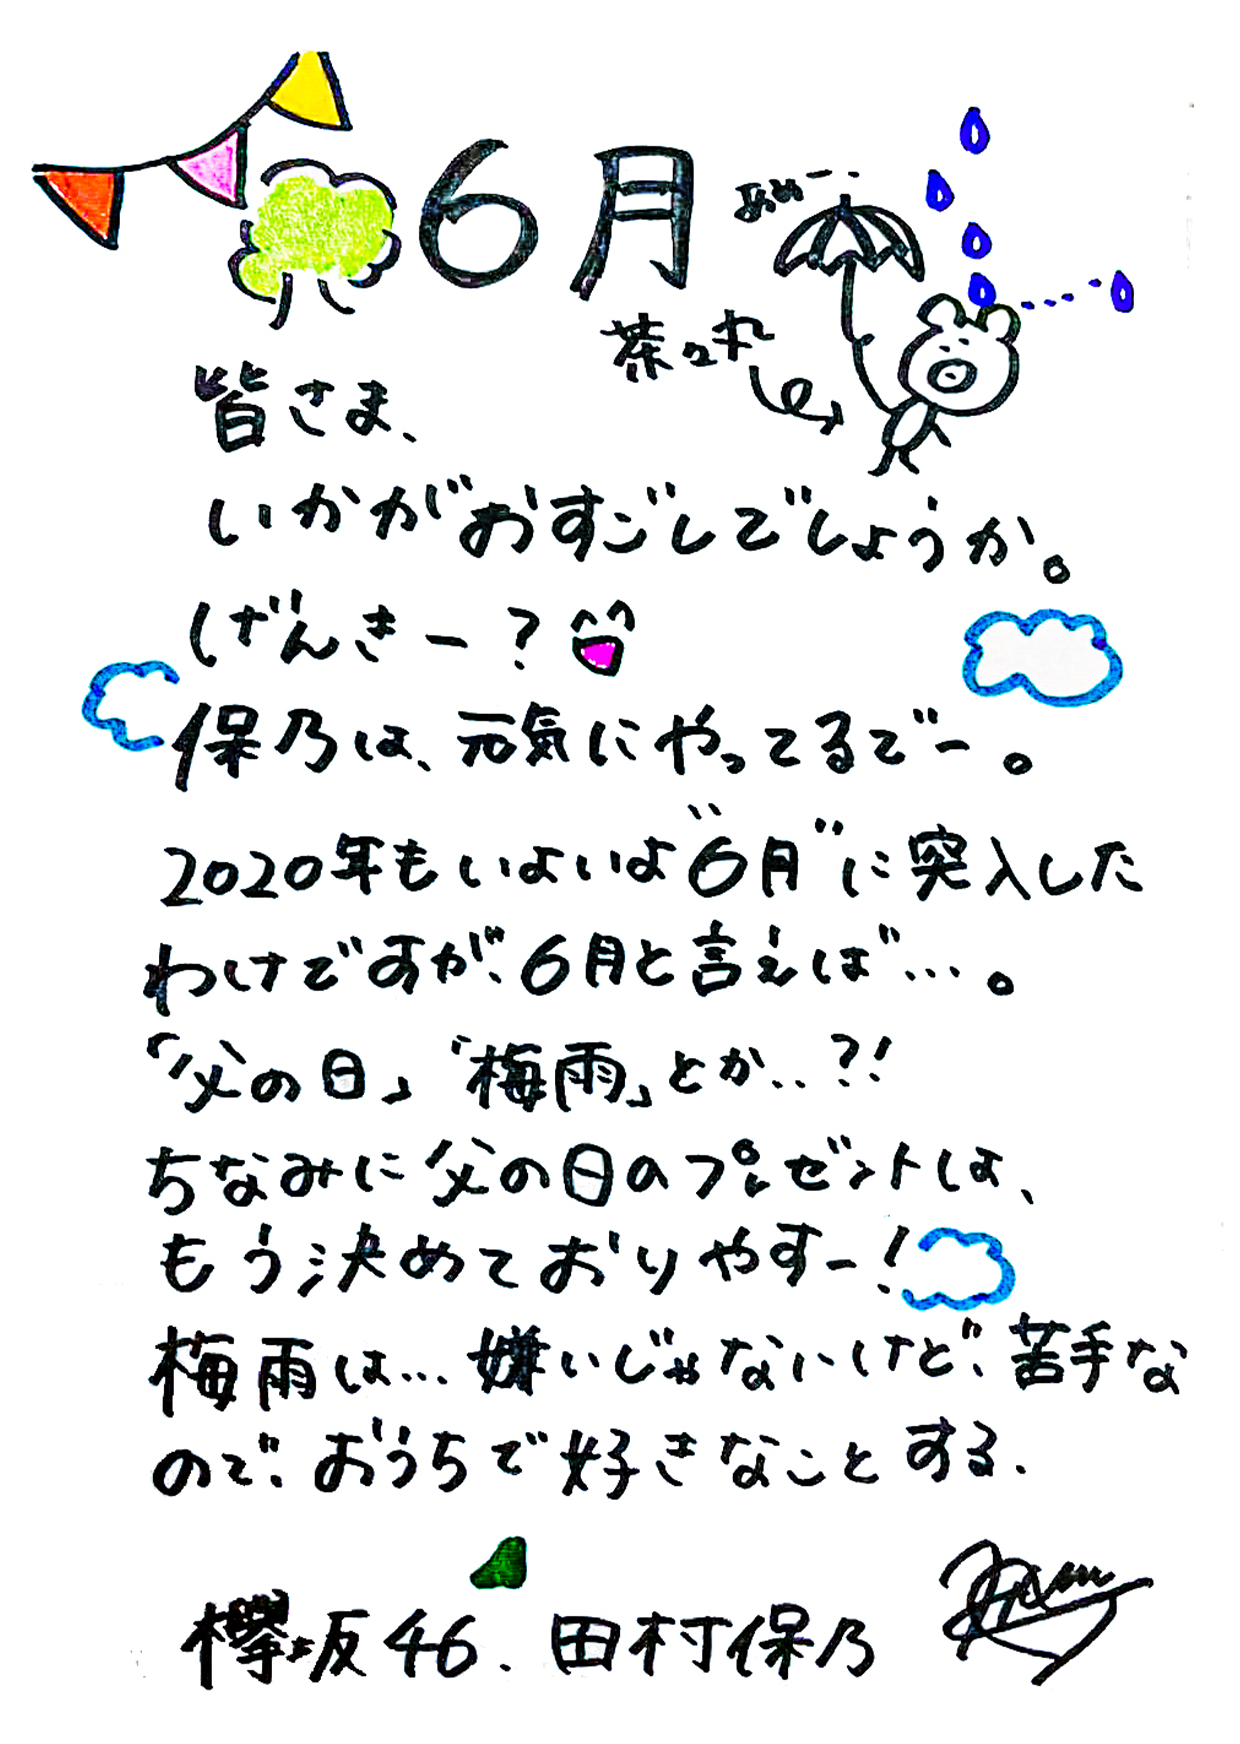 6月
あめー
茶々丸
皆さま、
いかがおすごしでしょうか。
げんきー?
保乃は、元気にやってるでー。
2020年もいよいよ"6月"に突入した
わけですが、6月と言えば…。
「父の日」「梅雨」とか..?!
ちなみに父の日のプレゼントは、
もう決めておりやすー!
梅雨は…嫌いじゃないけど、苦手な
ので、おうちで好きなことする.
欅坂46. 田村保乃